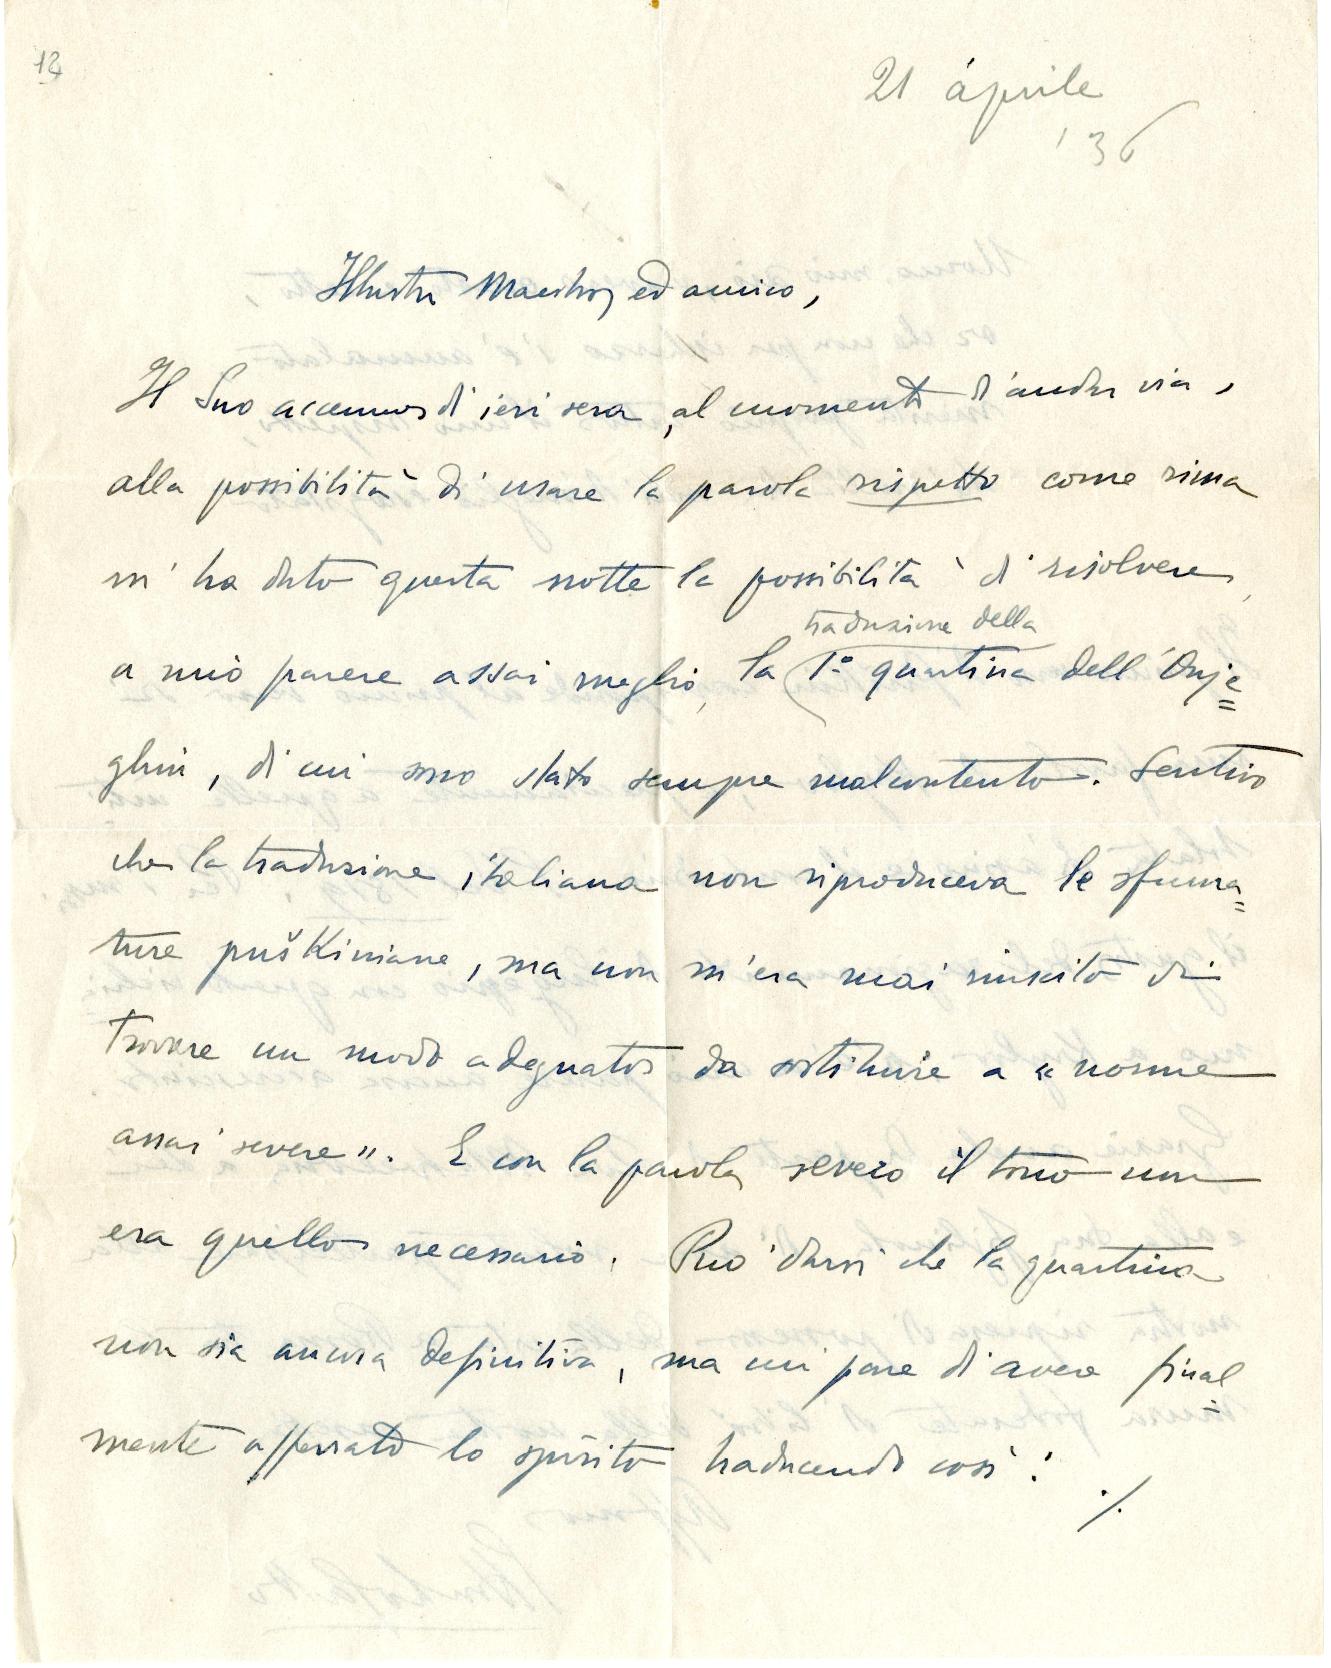 12
21 aprile
'36
Illustre Maestro, ed amico,
Il Suo accenno di ieri sera, al momento d'andar via,
alla possibilità di usare la parola rispetto come rima
m'ha dato questa notte la possibilità di risolvere,
traduzione della
a mio parere assai meglio, la 1ª quartina dell'Onje=
ghin, di cui sono stato sempre malcontento. Sentivo
che la traduzione italiana non riproduceva le sfuma=
ture puškiniane, ma non m'era mai riuscito di
trovare un modo adeguato da sostituire a « norme
assai severe ». E con la parola severo il tono non
era quello necessario. Può darsi che la quartina
non sia ancora definitiva, ma mi pare di avere final=
mente afferrato lo spirito traducendo così :
./.